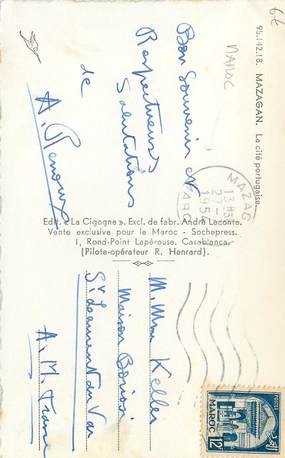 95.142.18. MAZAGAN. La cité portugaise.
MAROC
6€
Bon Souvenir et
Respectueuses
Salutations
de
A. Renoux
MAZAG
13H3
27-
195
MAROC
Edit. « La Cigogne ». Excl. de fabr. André Leconte.
Vente exclusive pour le Maroc - Sochepress.
1, Rond-Point Lapérouse. Casablanca.
(Pilote-opérateur R. Henrard).
M. Mme Keller
Maison
St Laurent du Var
A. M. France
MAROC 12F